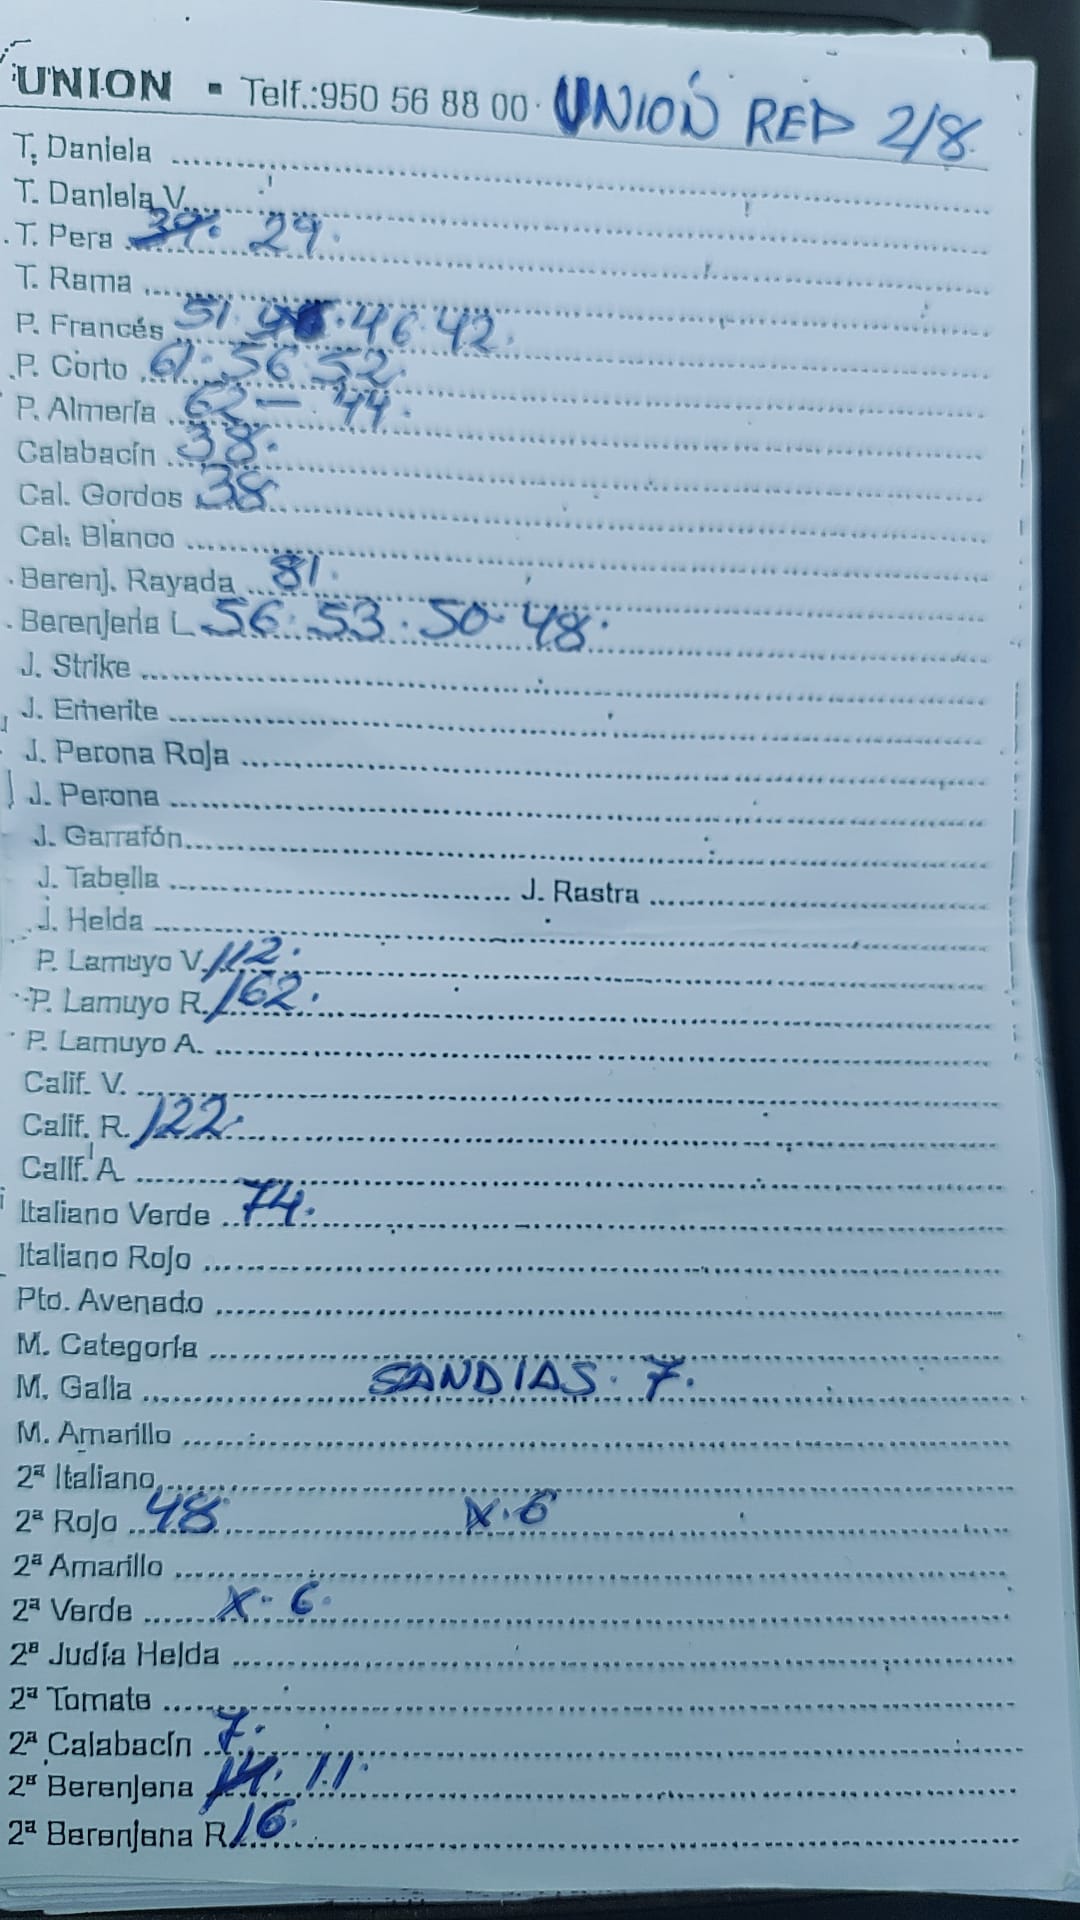 UNION ▪ Telf.:950 56 88 00 · UNION RED 2/8
T. Daniela
T. Daniela V.
T. Pera 29.
T. Rama
P. Francés 51. 46. 42.
P. Corto 61. 56 52
P. Almería 62 - 44.
Calabacín 38.
Cal. Gordos 38
Cal. Blanco
Berenj. Rayada 81.
Berenjena L 56. 53. 50. 48.
J. Strike
J. Emerite
J. Perona Roja
J. Perona
J. Garrafón
J. Tabella J. Rastra
J. Helda
P. Lamuyo V. 112.
P. Lamuyo R. 162.
P. Lamuyo A.
Calif. V.
Calif. R. 122.
Calif. A
Italiano Verde 74.
Italiano Rojo
Pto. Avenado
M. Categoría
M. Galia SANDIAS. 7.
M. Amarillo
2ª Italiano
2ª Rojo 48 X. 6
2ª Amarillo
2ª Verde X. 6.
2ª Judía Helda
2ª Tomate
2ª Calabacín 7.
2ª Berenjena 11.
2ª Berenjena R. 16.